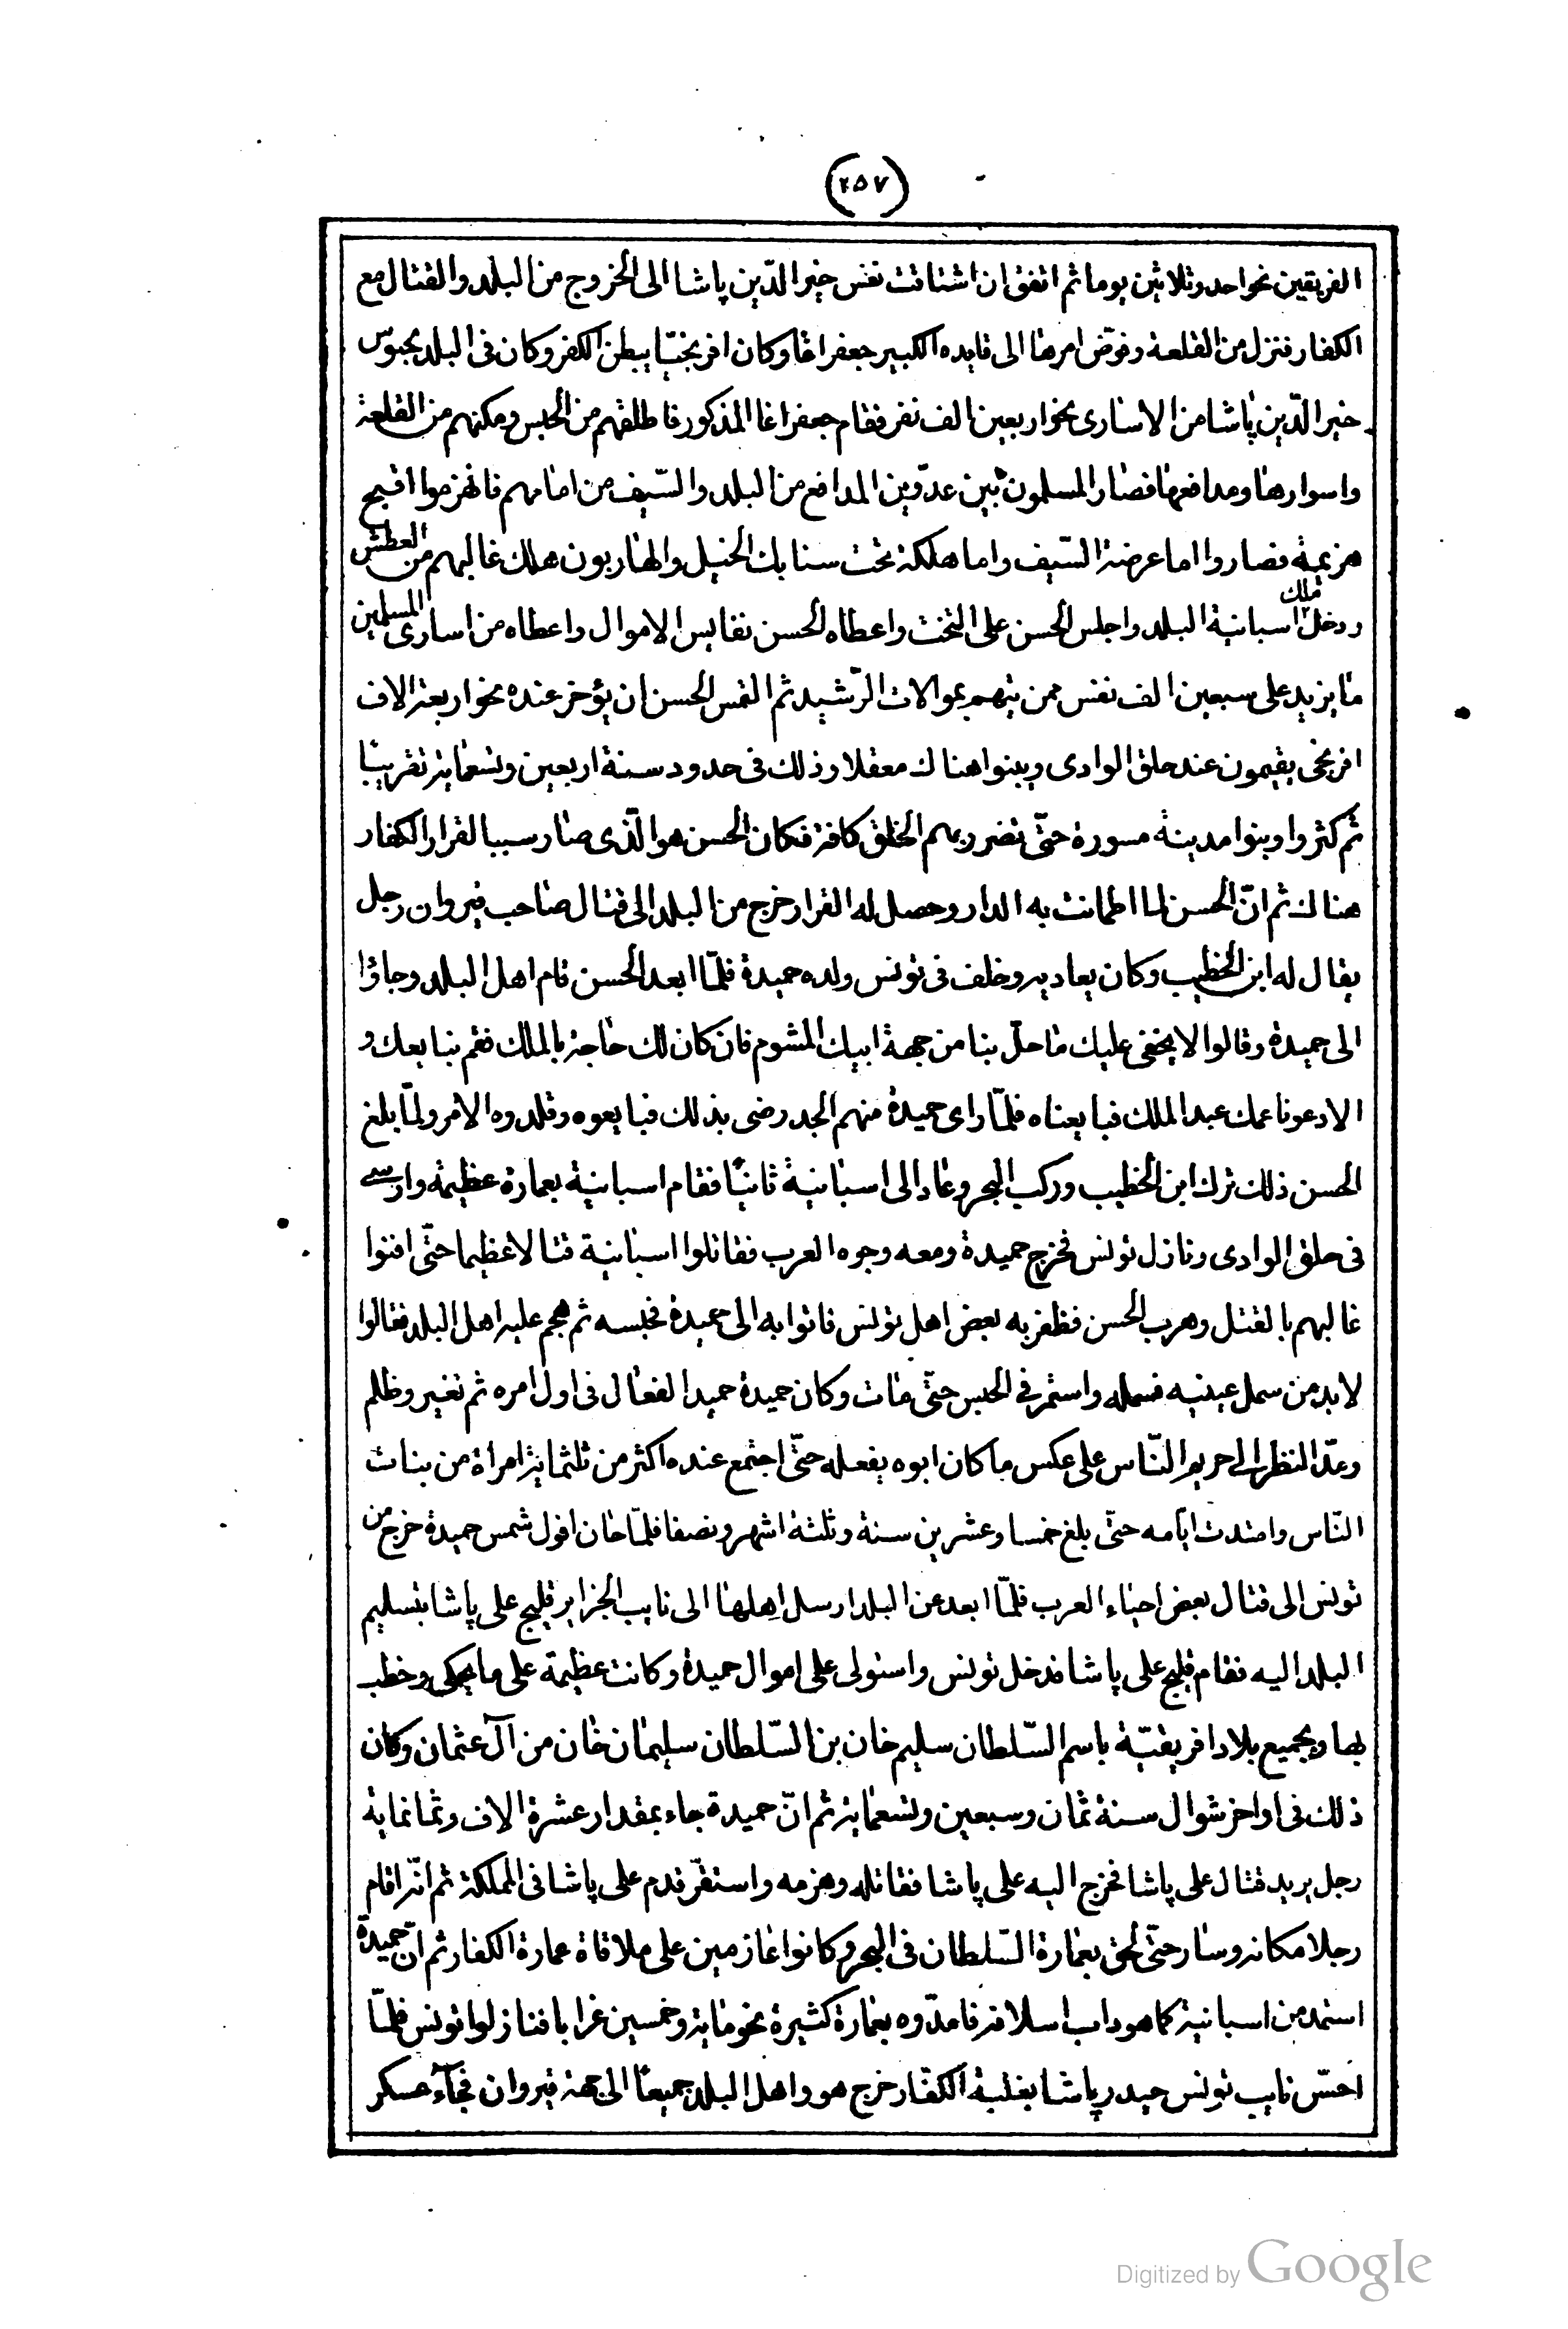 (٢٥٧)
الفريقين نحواحد وثلاثين يوما ثم اتفق ان اشتاقت نفس خير الدّين پاشا الى الخروج من البلد والقتال مع
الكفار فنزل من القلعة وفوّض امرها الى قايده الكبير جعفر اغا وكان افرنجيّا يبطن الكفر وكان فى البلد بحبوس
خير الدّين پاشا من الاسارى نحوار بعين الف نفر فقام جعفر اغا المذكور فاطلقهم من الحبس ومكنهم من القلعة
واسوارها ومدافعها فصار المسلمون بين عدوّين المدافع من البلد والسّيف من امامهم فانهزموا اقبح
هزيمة فصاروا اما عرضة السّيف واما هلكة تحت سنابك الخيل والهاربون هلك غالبهم من العطش
ودخل ملك اسبانية البلد واجلس الحسن على التخت واعطاه الحسن نفايس الاموال واعطاه من اسارى المسلمين
ما يزيد على سبعين الف نفس ممن يتهم بموالات الرّشيد ثم التمس الحسن ان يؤخر عنده نحوار بعة الاف
افرنجى يقيمون عند حلق الوادى ويبنوا هناك معقلا وذلك فى حدود سنة اربعين وتسعماية تقريبًا
ثم كثروا وبنوا مدينة مسورة حتّى تضرر بهم الخلق كافة فكان الحسن هو الّذى صار سببا لقرار الكفار
هناك ثم انّ الحسن لما اطمانت به الدار وحصل له القرار خرج من البلد الى قتال صاحب قيروان رجل
يقال له ابن الخطيب وكان يعاديه وخلف فى تونس ولده حميدة فلمّا ابعد الحسن قام اهل البلد وجاؤا
الى حميدة وقالوا لا يخفى عليك ما حلّ بنا من جهة ابيك المشوم فان كان لك حاجة بالملك فقم نبايعك و
الا دعونا عمك عبد الملك فبايعناه فلمّا راى حميدة منهم الجد رضى بذلك فبايعوه وقلدوه الامر ولمّا بلغ
الحسن ذلك ترك ابن الخطيب وركب البحر وعاد الى اسبانية ثانيًا فقام اسبانية بعمارة عظيمة وارسى
فى حلق الوادى ونازل تونس فخرج حميدة ومعه وجوه العرب فقاتلوا اسبانية قتالا عظيما حتّى افنوا
غالبهم بالقتل وهرب الحسن فظفر به بعض اهل تونس فاتوا به الى حميدة فحبسه ثم هجم عليه اهل البلد فقالوا
لا بد من سمل عينيه فسمله واستمر فى الحبس حتّى مات وكان حميدة حميد الفعال فى اول امره ثم تغير وظلم
ومدّ النظر الى حريم النّاس على عكس ما كان ابوه يفعله حتّى اجتمع عنده اكثر من ثلثماية امراة من بنات
النّاس وامتدت ايّامه حتّى بلغ خمسا وعشرين سنة وثلثة اشهر ونصفا فلمّا حان افول شمس حميدة خرج من
تونس الى قتال بعض احياء العرب فلمّا ابعد عن البلد ارسل اهلها الى نايب الجزاير قليج على پاشا بتسليم
البلد اليه فقام قليج على پاشا فدخل تونس واستولى على اموال حميدة وكانت عظيمة على ما يحكى وخطب
بها وبجميع بلاد افريقيّة باسم السّلطان سليم خان بن السّلطان سليمان خان من آل عثمان وكان
ذلك فى اواخر شوال سنة ثمان وسبعين وتسعماية ثم انّ حميدة جاء بمقدار عشرة الاف وثمانماية
رجل يريد قتال على پاشا فخرج اليه على پاشا فقاتله وهزمه واستقرّ قدم على پاشا فى المملكة ثم انّه اقام
رجلا مكانه وسار حتّى لحق بعمارة السّلطان فى البحر وكانوا عازمين على ملاقاة عمارة الكفار ثم انّ حميدة
استمد من اسبانية كما هو داب اسلافه فامدّوه بعمارة كثيرة نحو ماية وخمسين غرابا فنازلوا تونس فلمّا
احسّ نايب تونس حيدر پاشا بغلبة الكفّار خرج هو واهل البلد جميعًا الى جهة قيروان فجآء عسكر
Digitized by Google